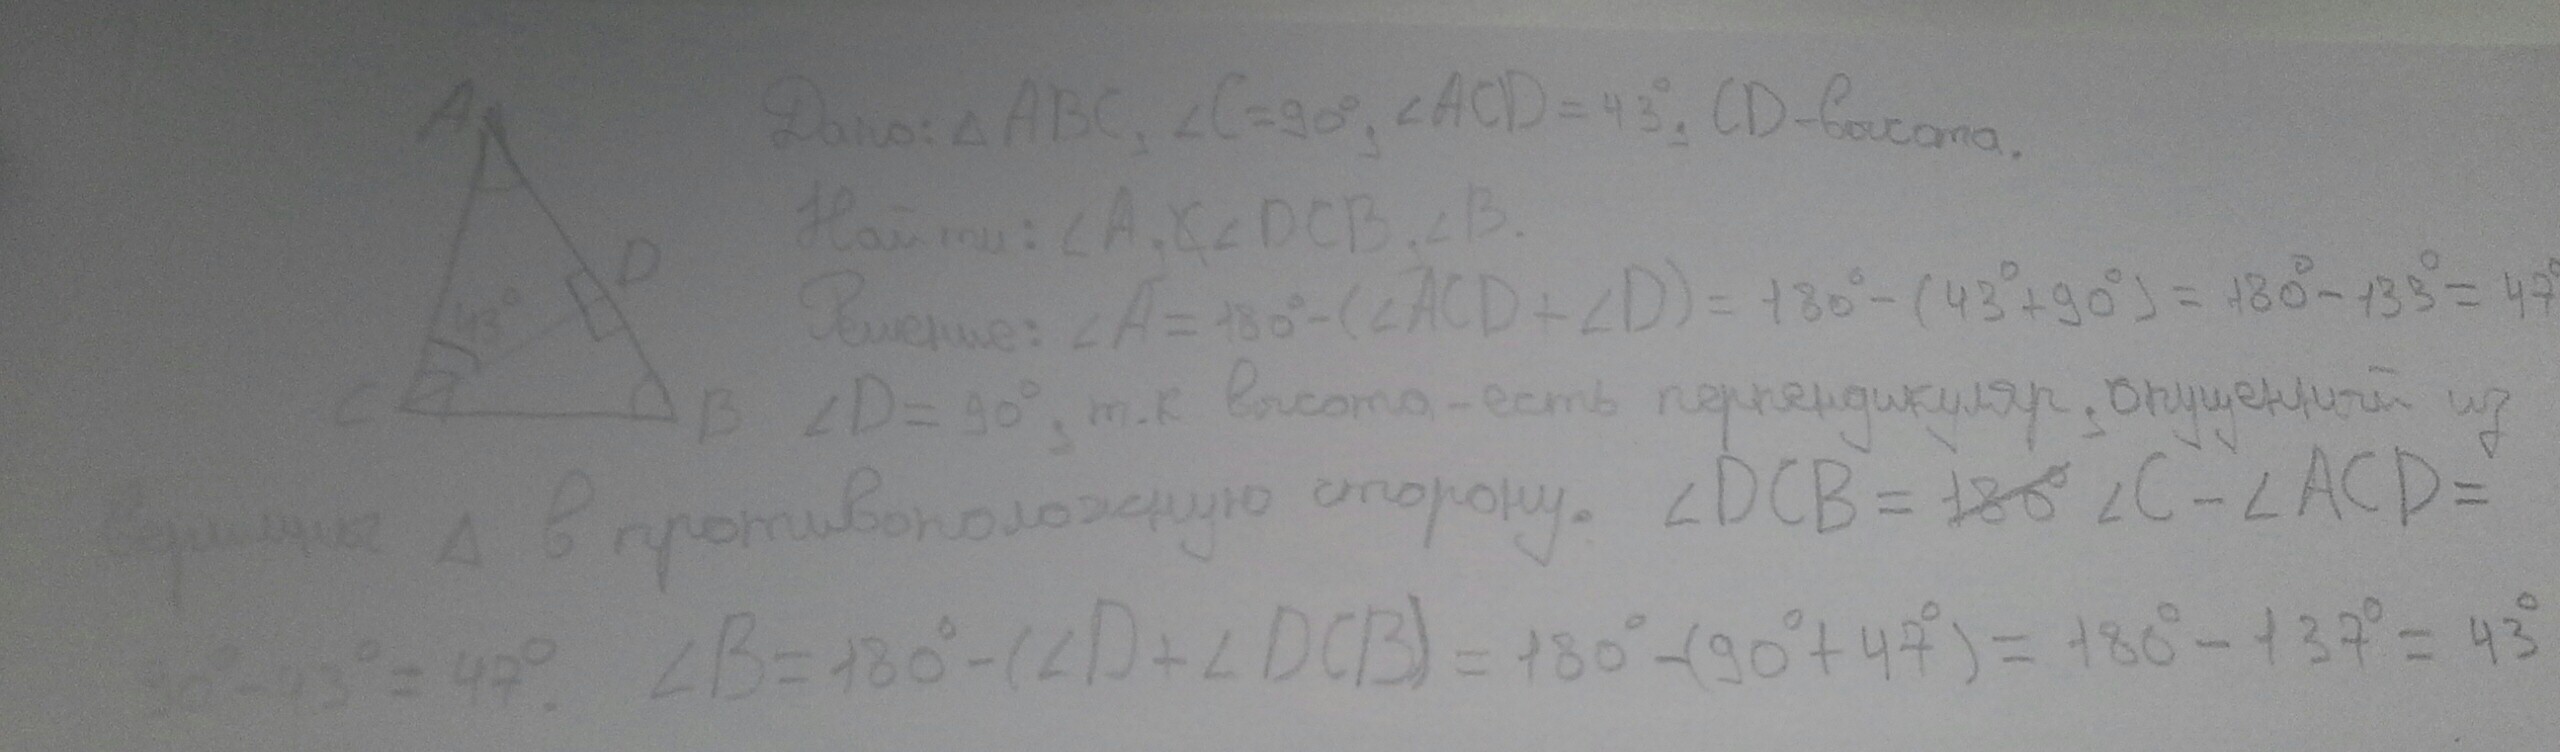 A
Дано: △ ABC, ∠C=90°, ∠ACD=43°, CD-высота.
Найти: ∠A, ∠DCB, ∠B.
D
Решение: ∠A=180°-(∠ACD+∠D)=180°-(43°+90°)=180°-133°=47°
43°
C
B
∠D=90°, т.к высота-есть перпендикуляр, опущенный из
вершины △ в противоположную сторону. ∠DCB= 180° ∠C-∠ACD=
90°-43°=47°. ∠B=180°-(∠D+∠DCB)=180°-(90°+47°)=180°-137°=43°